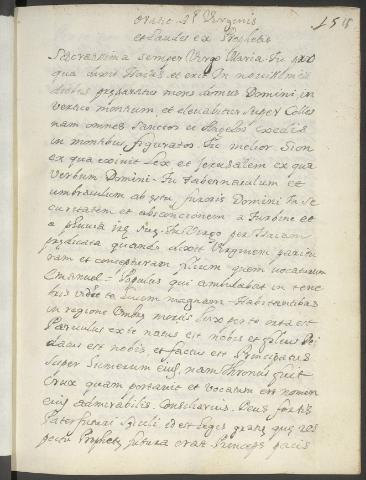 oratio De Virginis
et Laudes ex Prophetis
Sacratissima semper Virgo Maria tu
qua dixit Isaias et erit In novissimis
diebus preparatus mons domus Domini in
vertice montium, et elevabitur super Colles
nam omnes Sanctos et Angelos excedis
in montibus figuratos. Tu melior Sion
ex qua exivit Lex et Jerusalem ex qua
Verbum Domini. Tu tabernaculum et
umbraculum ab furoris Domini In se
curitatem et absconcionem a turbine et
a pluvia Tu Virgo per Isaiam
predicata quando dixit Virginem paritu
ram et concepturam filium quem vocaturum
Emanuel. Populus qui ambulabat in tene
bris vidit Lucem magnam. Habitantibus
in regione Umbra mortis Lux orta est
Parvulus ex te natus est nobis et filius Dei
datus est nobis, et factus est Principatus
super humerum eius, nam thronus fuit
Crux quam portavit et vocatum est nomen
eius admirabilis. Consiliarius. Deus fortis
Pater futuri Seculi id est legis gratiæ que res
pectu Prophetæ futura erat Princeps pacis